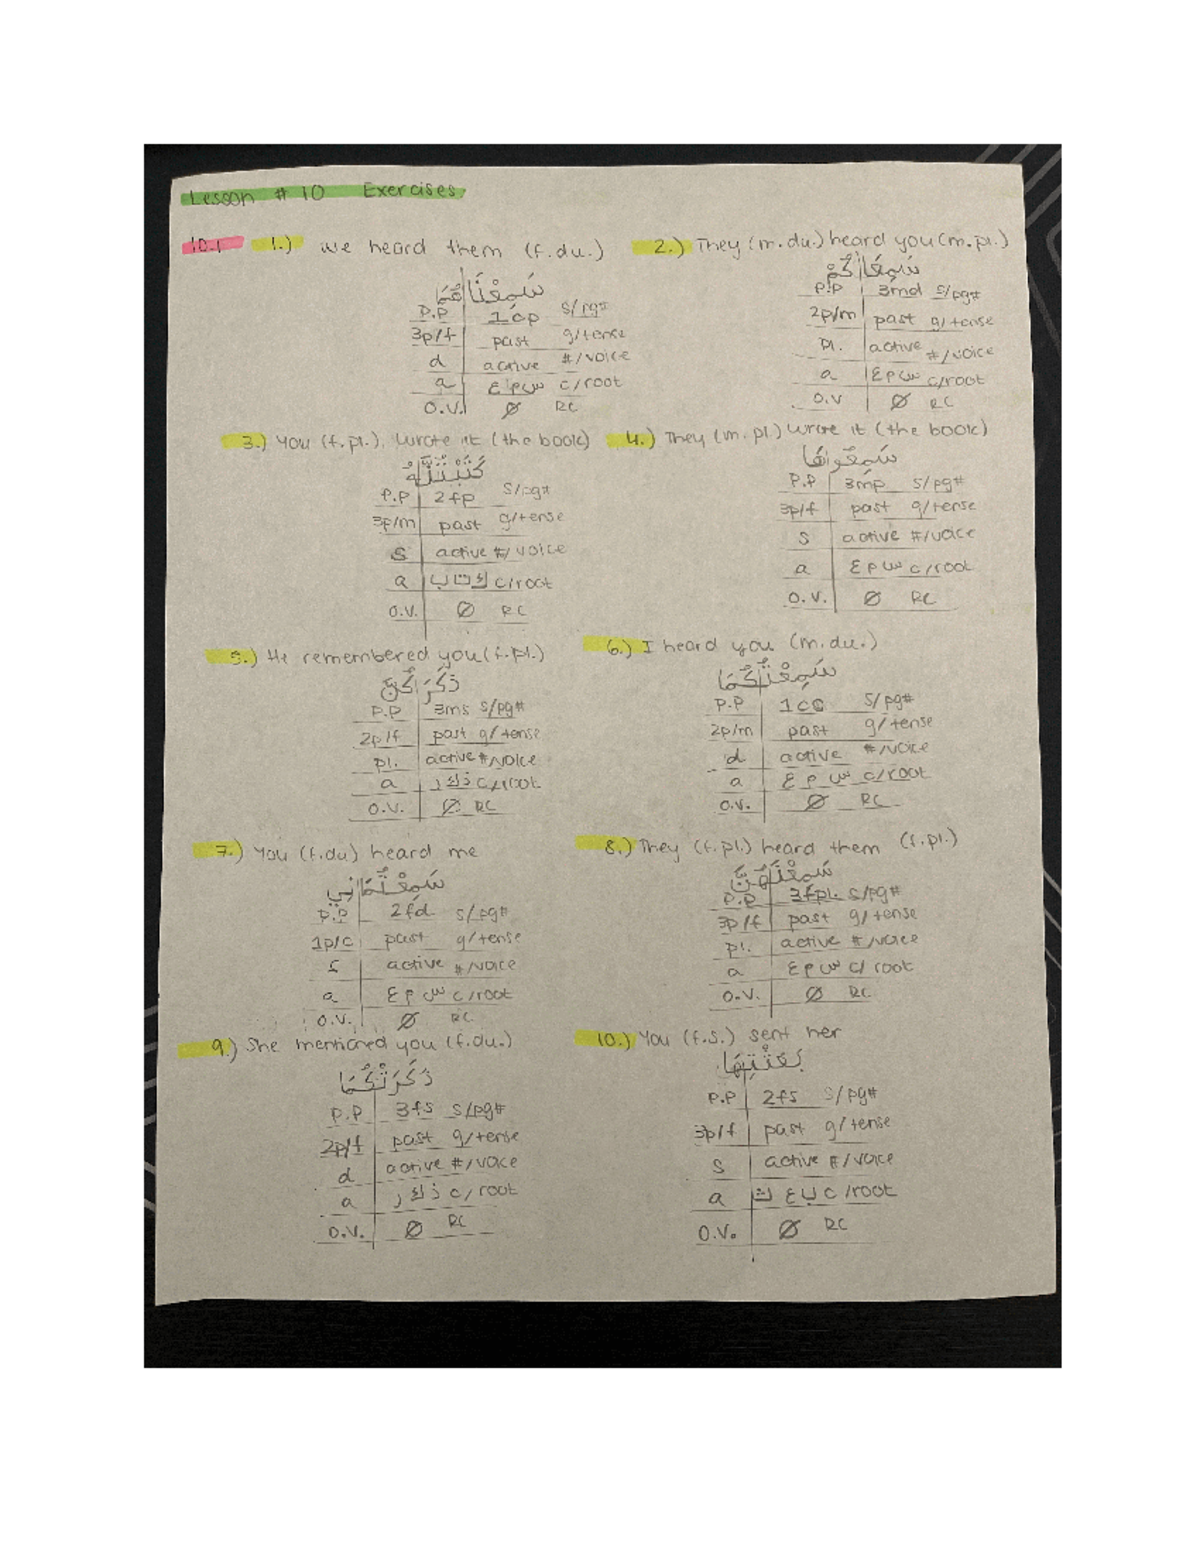 Lesson # 10 Exercises
10.1 1.) we heard them (f.du.)
سَمِعْنَا|هُمَا
P.P | 1cp s/pg#
3p/f | past g/tense
d | active #/voice
a | س م ع c/root
O.V. | Ø RC
2.) They (m.du.) heard you (m.pl.)
سَمِعَا|كُمْ
P.P | 3md s/pg#
2p/m | past g/tense
pl. | active #/voice
a | س م ع c/root
O.V | Ø RC
3.) You (f.pl.) wrote it (the book)
كَتَبْتُنَّهُ
P.P | 2fp s/pg#
3p/m | past g/tense
s | active #/voice
a | ك ت ب c/root
O.V. | Ø RC
4.) They (m.pl) wrote it (the book)
سَمِعُواهَا
P.P | 3mp s/pg#
3p/f | past g/tense
s | active #/voice
a | س م ع c/root
O.V. | Ø RC
5.) He remembered you (f.pl.)
ذَكَرَ|كُنَّ
P.P | 3ms s/pg#
2p/f | past g/tense
pl. | active #/voice
a | ذ ك ر c/root
O.V. | Ø RC
6.) I heard you (m.du.)
سَمِعْتُ|كُمَا
P.P | 1cs s/pg#
2p/m | past g/tense
d | active #/voice
a | س م ع c/root
O.V. | Ø RC
7.) You (f.du) heard me
سَمِعْتُمَا|نِي
P.P | 2fd s/pg#
1p/c | past g/tense
s | active #/voice
a | س م ع c/root
O.V. | Ø RC
8.) They (f.pl.) heard them (f.pl.)
سَمِعْنَ|هُنَّ
P.P | 3fpl. s/pg#
3p/f | past g/tense
pl. | active #/voice
a | س م ع c/root
O.V. | Ø RC
9.) She mentioned you (f.du.)
ذَكَرَتْ|كُمَا
P.P | 3fs s/pg#
2p/f | past g/tense
d | active #/voice
a | ذ ك ر c/root
O.V. | Ø RC
10.) You (f.s.) sent her
بَعَثْتِهَا
P.P | 2fs s/pg#
3p/f | past g/tense
s | active #/voice
a | ب ع ث c/root
O.V. | Ø RC